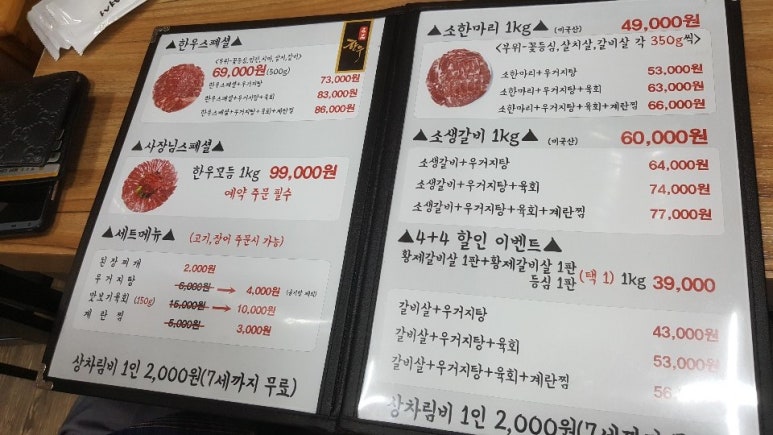 ▲한우스페셜▲
<부위-꽃등심,안심,치마,살치,갈비>
69,000원(500g)
한우스페셜+우거지탕 73,000원
한우스페셜+우거지탕+육회 83,000원
한우스페셜+우거지탕+육회+계란찜 86,000원
▲사장님스페셜▲
한우모듬 1kg 99,000원
예약 주문 필수
▲세트메뉴▲ (고기,장어 주문시 가능)
된장찌개 2,000원
우거지탕 6,000원 → 4,000원
맛보기육회 (150g) 15,000원 → 10,000원
계란찜 5,000원 → 3,000원
상차림비 1인 2,000원(7세까지 무료)
한우
▲소한마리 1kg▲ (미국산) 49,000원
<부위-꽃등심,살치살,갈비살 각 350g씩>
소한마리+우거지탕 53,000원
소한마리+우거지탕+육회 63,000원
소한마리+우거지탕+육회+계란찜 66,000원
▲소생갈비 1kg▲ (미국산) 60,000원
소생갈비+우거지탕 64,000원
소생갈비+우거지탕+육회 74,000원
소생갈비+우거지탕+육회+계란찜 77,000원
▲4+4 할인 이벤트▲
황제갈비살 1판+황제갈비살 1판
등심 1판 (택 1) 1kg 39,000
갈비살+우거지탕 43,000원
갈비살+우거지탕+육회 53,000원
갈비살+우거지탕+육회+계란찜 56
상차림비 1인 2,000원(7세